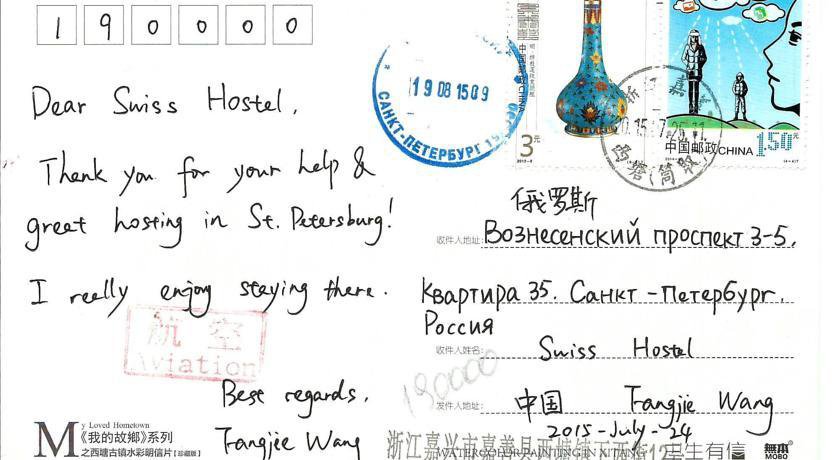 190000
Dear Swiss Hostel,
Thank you for your help &
great hosting in St. Petersburg!
I really enjoy staying there.
航空
Aviation
Best regards,
Fangjie Wang
My Loved Hometown
《我的故鄉》系列
之西塘古镇水彩明信片【珍藏版】
19 08 15 09
САНКТ-ПЕТЕРБУРГ
中国邮政
CHINA
3元
中国邮政CHINA
1.50元
浙江 嘉
西塘
俄罗斯
收件人地址: Вознесенский проспект 3-5,
Квартира 35. Санкт-Петербург.
Россия
收件人姓名: Swiss Hostel
190000
发件人地址: 中国 Fangjie Wang
2015-July-24
浙江嘉兴市嘉善县西塘镇
WATERCOLOR PAINTING IN XITANG
生有信
無本
MOBO